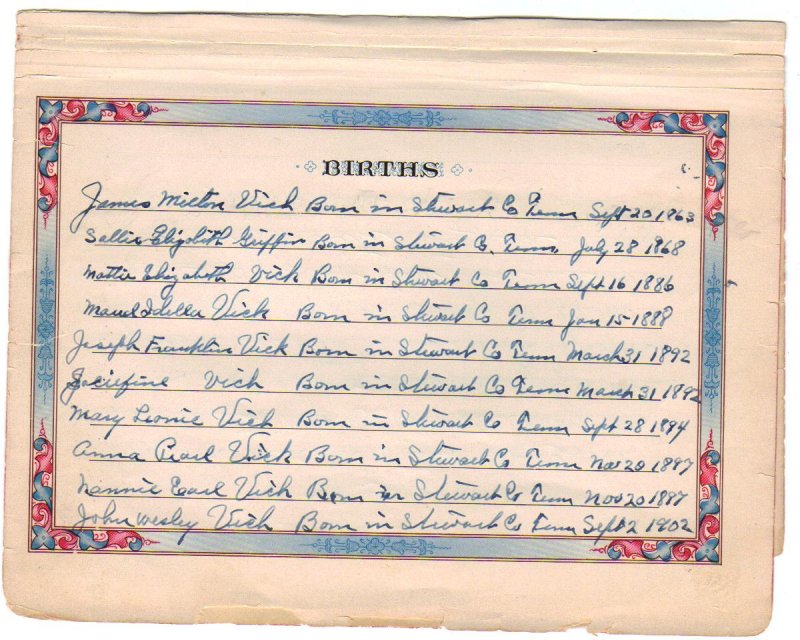 BIRTHS
James Milton Vick Born in Stewart Co Tenn Sept 20 1863
Sallie Elizabith Griffin Born in Stewart Co. Tenn. July 28 1868
Mattie Elizabeth Vick Born in Stewart Co Tenn Sept 16 1886
Maud Idella Vick Born in Stewart Co Tenn Jan 15 1888
Joseph Franklin Vick Born in Stewart Co Tenn March 31 1892
Vick Born in Stewart Co Tenn March 31 1892
Mary Leonie Vick Born in Stewart Co Tenn Sept 28 1894
Anna Pearl Vick Born in Stewart Co Tenn Nov 20 1897
Nannie Earl Vick Born in Stewart Co Tenn Nov 20 1897
John Wesley Vick Born in Stewart Co Tenn Sept 2 1902